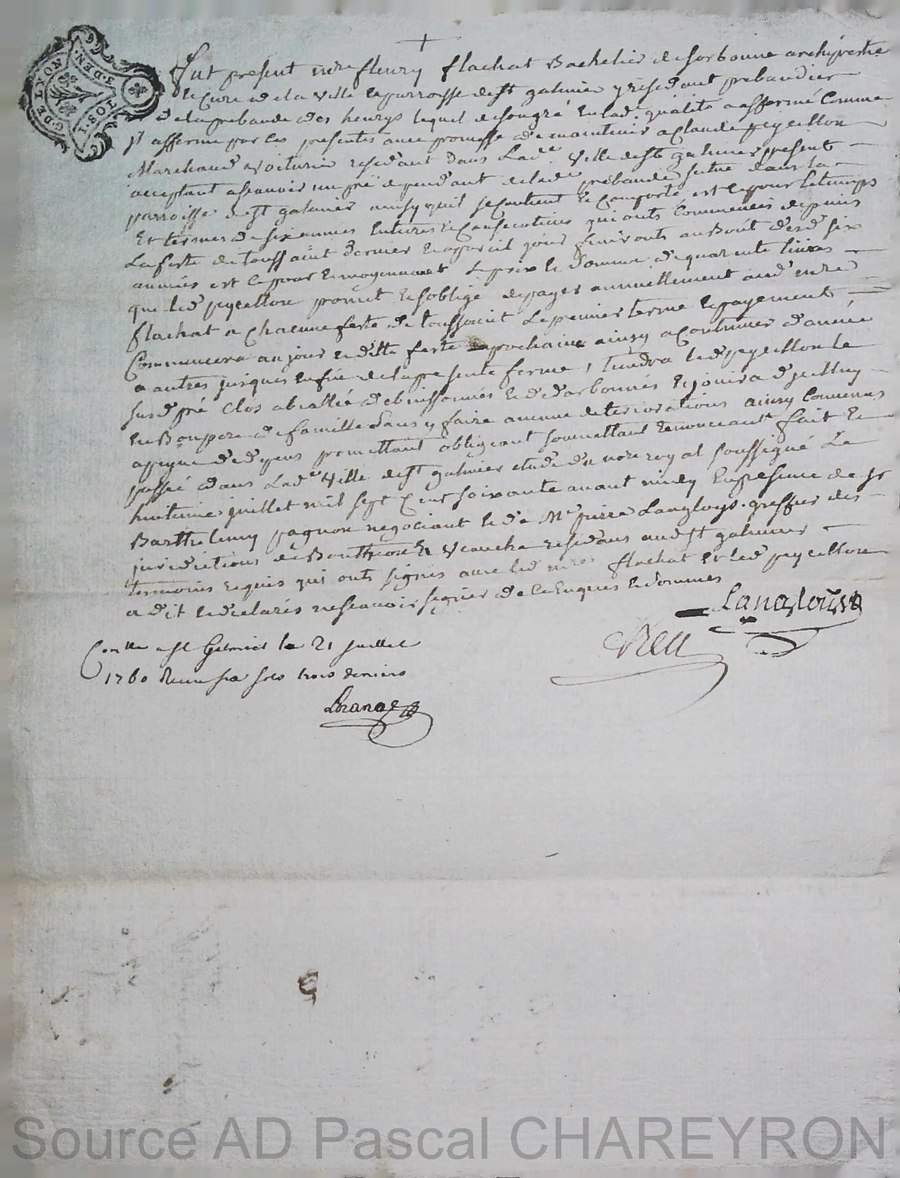 G. DE LYON
1. SOL. 3. DEN.
Fut present mre fleury flachat Bachelier de sorbonne archiprestre
et Curé de la ville et parroisse de st galmier y residant prebandier
de la prebande des henrys lequel de son gré en lad. qualité a affermé Comme
Il afferme par ces presentes avec promesse de maintenir a Claude peycellon
Marchand Voiturié residant dans Lade Ville de st galmier present
acceptant a sçavoir un pré dependant de lade prebande situé dans la
parroisse de st galmier ainsy quil se Contient et Comporte est ce pour le temps
Et termes de six années Entieres et Consecutives qui ont Commencés depuis
La feste de toussaint dernier et a pareil jour finiront au Bout desd six
années est ce pour et moyennant Le prix et somme de quarente livres
que led peycellon promet et s'oblige de payer annuellement aud mre
flachat a Chacune feste de toussaint Le premier terme et payement
Commencera au jour et ditte feste prochaine ainsy a Continuer d'année
a autres jusques En fin de la presente ferme, tiendra led peycellon le
susd pré Clos et
En Bon pere de famille sans y faire aucune deteriorations ainsy Convenus
a peyne de dépens promettant obligeant soumettant renonceant fait et
passé dans Lade Ville de st galmier etude du nore royal soussigné Le
huitieme juillet mil sept Cent soixante avant midy En presence de sr
Barthelemy pagnon negociant et de Me pierre Langloys greffier des
juridictions de Bouthéon et Veauche residans aud st galmier
temoins requis qui ont signés avec led mre flachat et led peycellon
a dit et declaré ne sçavoir signer de ce Enquis et sommés
Langlois
Reu
Conllé a st Galmier le 21 juillet
1760 Reçu six sols trois deniers
Source AD Pascal CHAREYRON